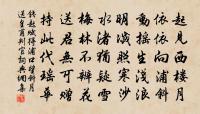 起見西樓月
依依向浦斜
動搖生淺浪
明滅照寒沙
水浦猶疑雪
梅林不辨花
送君無可贈
持此代瑤華
錢起賦得浦口望斜月
送皇甫判官詞典集